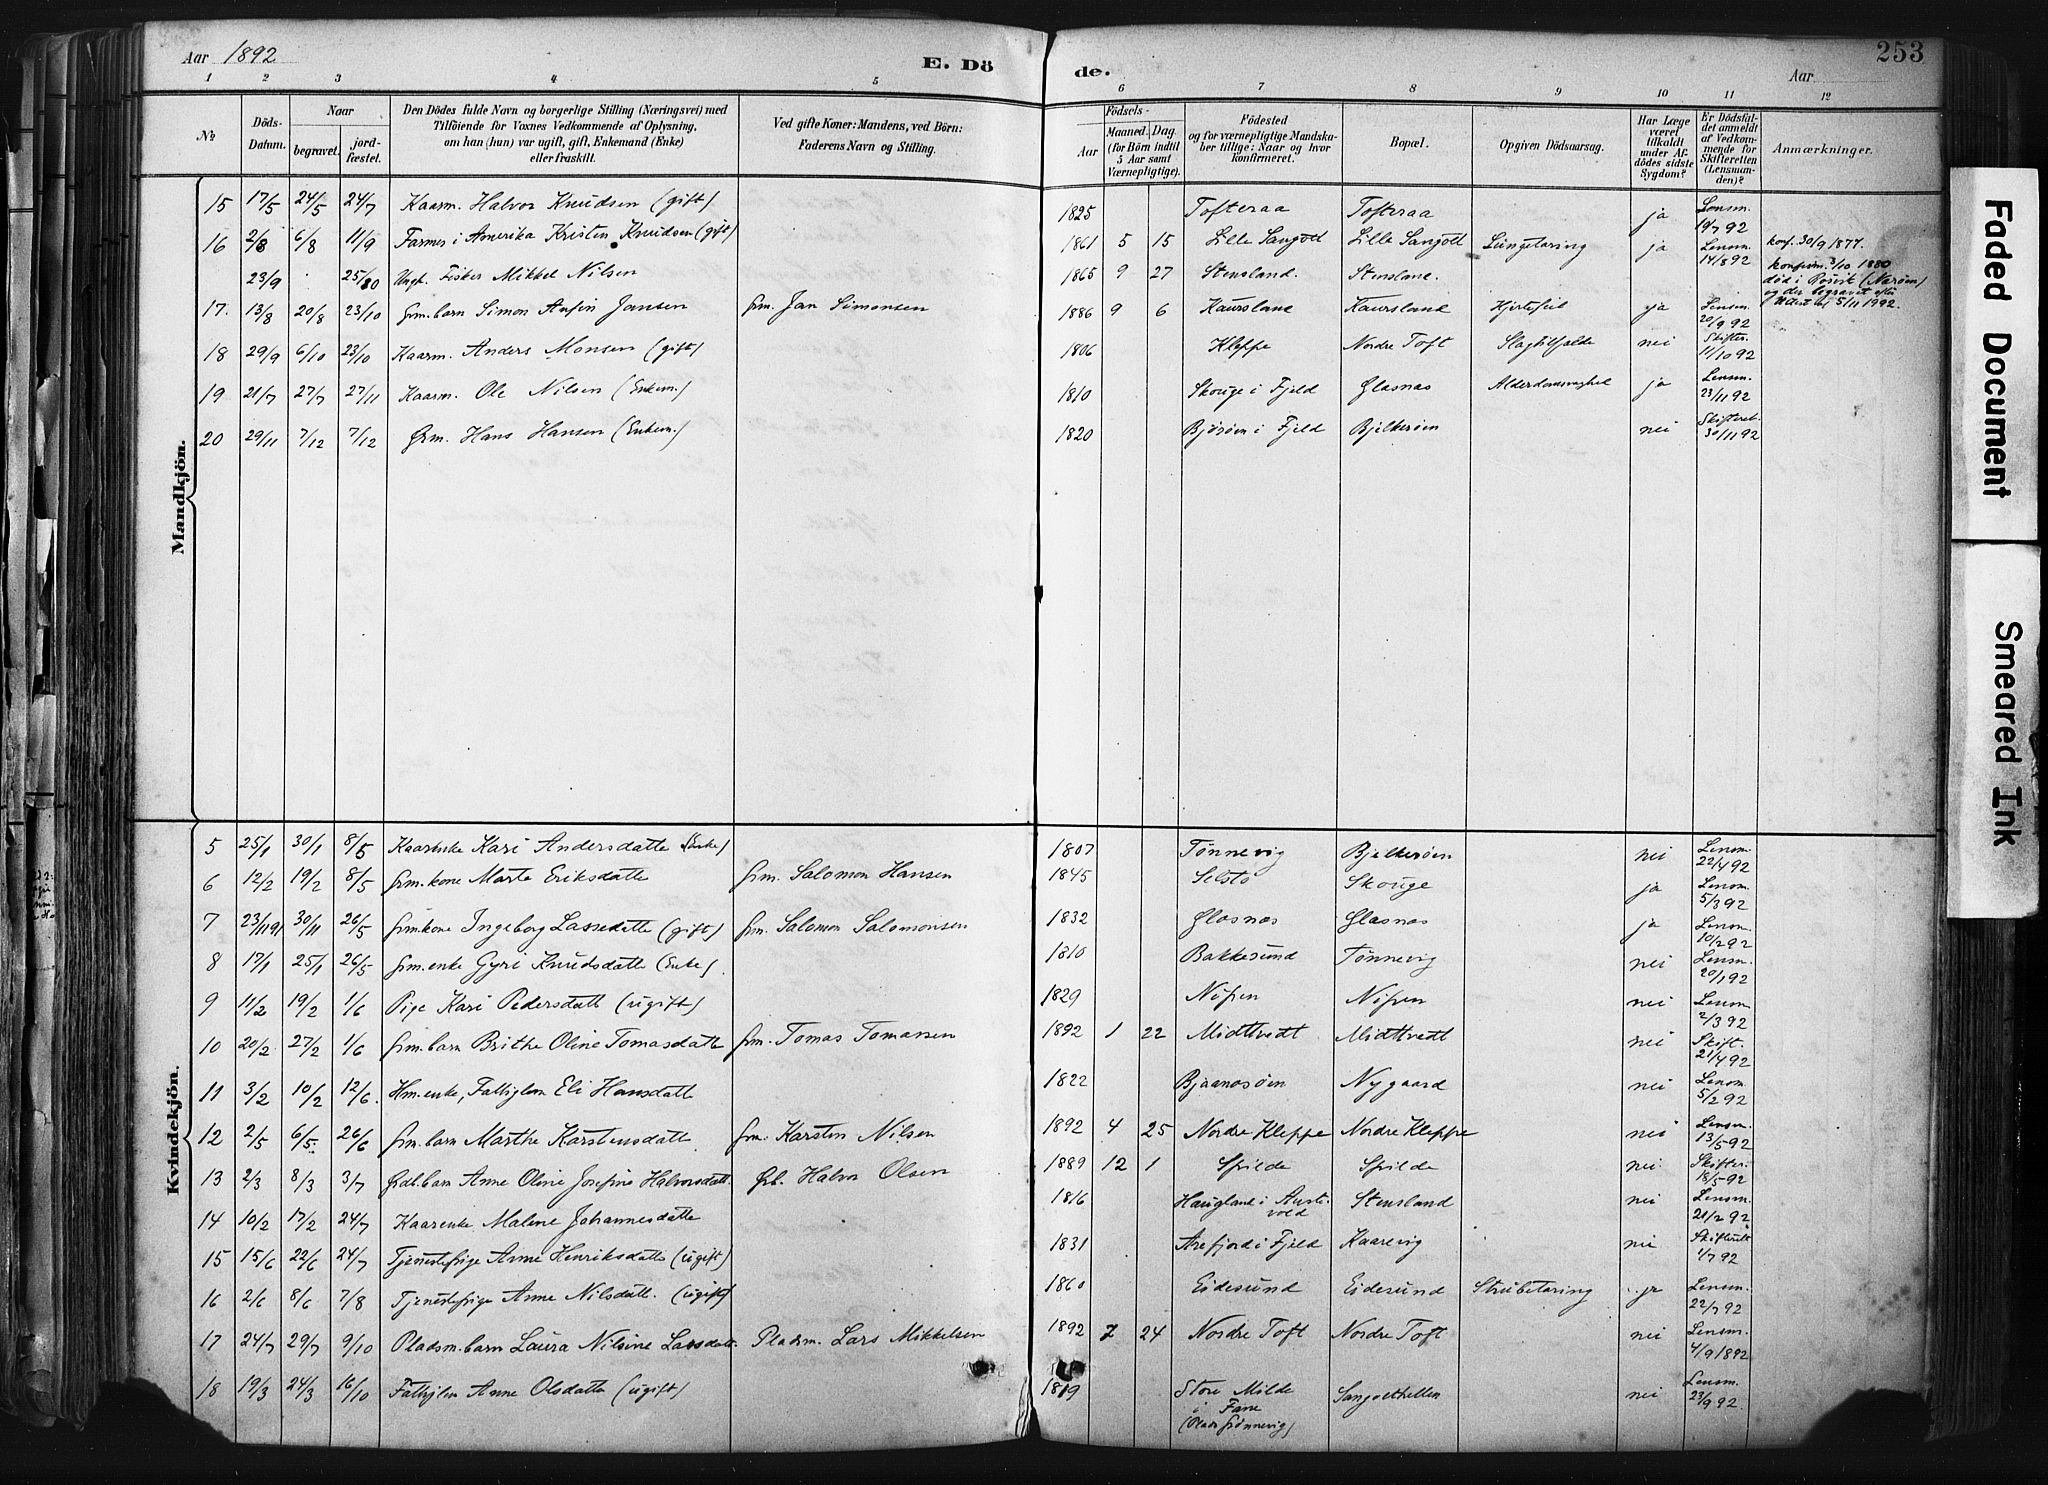 Aar 1892
E. Dö
de.
Aar
253
1 2 3 4 5 6 7 8 9 10 11 12
№
Döds-
Datum.
Naar
begravet.
jord-
fæstet.
Den Dödes fulde Navn og borgerlige Stilling (Næringsvei) med
Tilföiende for Voxnes Vedkommende af Oplysning,
om han (hun) var ugift, gift, Enkemand (Enke)
eller fraskilt.
Ved gifte Koner: Mandens, ved Börn:
Faderens Navn og Stilling.
Födsels-
Aar
Maaned. Dag.
(for Börn indtil
5 Aar samt
Værnepligtige).
Födested
og for værnepligtige Mandska-
ber tillige: Naar og hvor
konfirmeret.
Bopæl.
Opgiven Dödsaarsag.
Har Læge
været
tilkaldt
under Af-
dödes sidste
Sygdom?
Er Dödsfal-
det anmeldt
af Vedkom-
mende for
Skifteretten
(Lensman-
den)?
Anmærkninger.
Mandkjön.
15 17/5 24/5 24/7 Kaarm. Halvor Knudsen (gift) 1825 Tofteraa Tofteraa ja Lensm. 19/7 92
16 2/8 6/8 11/9 Farmer i Amerika Kristen Knudsen (gift) 1861 5 15 Lille Sangolt Lille Sangolt Lungetæring ja Lensm. 14/8 92 konf. 30/9 1877.
23/9 25/10 Ungk. Fisker Mikkel Nilsen 1865 9 27 Stensland. Stensland. konfirm. 3/10 1880
død i (Narøen)
og der begravet efter
5/11 1992.
17. 13/8 20/8 23/10 Grm. barn Simon Anfin Jansen Grm. Jan Simonsen 1886 9 6 Kaursland Kaursland Hjertefeil ja Lensm. 20/9 92
18 29/9 6/10 23/10 Kaarm. Anders Monsen (gift) 1806 Kleppe Nordre Toft Slagtilfælde nei Skifter. 11/10 92
19 21/7 27/7 27/11 Kaarm. Ole Nilsen (Enkem.) 1810 Skouge i Fjeld Glasnas Alderdomssvaghed ja Lensm. 23/11 92
20 29/11 7/12 7/12 Grm. Hans Hansen (Enkem.) 1820 Bjørøen i Fjeld Bjelkerøen nei Skifteret. 30/11 92
Kvindekjön.
5 25/1 30/1 8/5 Kaarenke Kari Andersdatte (Enke) 1807 Tønnevig Bjelkerøen nei Lensm. 22/4 92
6 12/2 19/2 8/5 Grm. kone Marte Eriksdatte Grm. Salomon Hansen 1845 Selstø Skouge ja Lensm. 5/3 92
7 23/11 91 30/11 26/5 Grm. kone Ingeborg Lassedatte (gift) Grm. Salomon Salomonsen 1832 Glasnas Glasnas ja Lensm. 10/2 92
8 17/1 25/1 26/5 Grm. enke Gyri Knudsdatte (Enke). 1810 Bakkesund Tønnevig nei Lensm. 20/1 92
9 11/2 19/2 1/6 Pige Kari Pedersdatt (ugift) 1829 Nipen Nipen nei Lensm. 2/3 92
10 20/2 27/2 1/6 Grm. barn Brithe Oline Tomasdatte Grm. Tomas Tomassen 1892 1 22 Midttvedt Midttvedt nei Skift. 21/4 92
11 3/2 10/2 12/6. Hm. enke, Fattiglem Eli Hansdatt 1822 Bjaanesøen Nygaard nei Lensm. 5/2 92
12 2/5 6/5. 26/6 Grm. barn Marthe Karstensdatt Grm. Karsten Nilsen 1892 4 25 Nordre Kleppe Nordre Kleppe nei Lensm. 13/5 92
13 2/3 8/3 3/7 Grdb. barn Anne Oline Josefine Halvorsdatt. Grb. Halvor Olsen 1889 12 1 Spilde Spilde nei Skifter. 18/5 92
14 10/2 17/2 24/7 Kaarenke Malene Johannesdatte 1816 Haugland i Auste-
vold Stensland nei Lensm. 21/2 92.
15 15/6 22/6 24/7 Tjenestepige Anne Henriksdatte (ugift) 1831 Arefjord i Fjeld Kaarevig nei Skifterett 1/7 92
16 2/6 8/6 7/8 Tjenestepige Anne Nilsdatt. (ugift) 1860 Eidesund Eidesund Strubetæring ja Lensm. 22/7 92
17 24/7 29/7 9/10 Pladsm. barn Laura Nilsine Larsdatt. Pladsm. Lars Mikkelsen 1892 7 24 Nordre Toft Nordre Toft nei Lensm. 4/9 1892
18 19/3 24/3 16/10 Fattiglem Anne Olsdatte (ugift) 1819 Store Milde
i Fane
(Plads Grønnevig) Sangolthellen nei Lensm. 23/9 92.
Faded Document
Smeared Ink